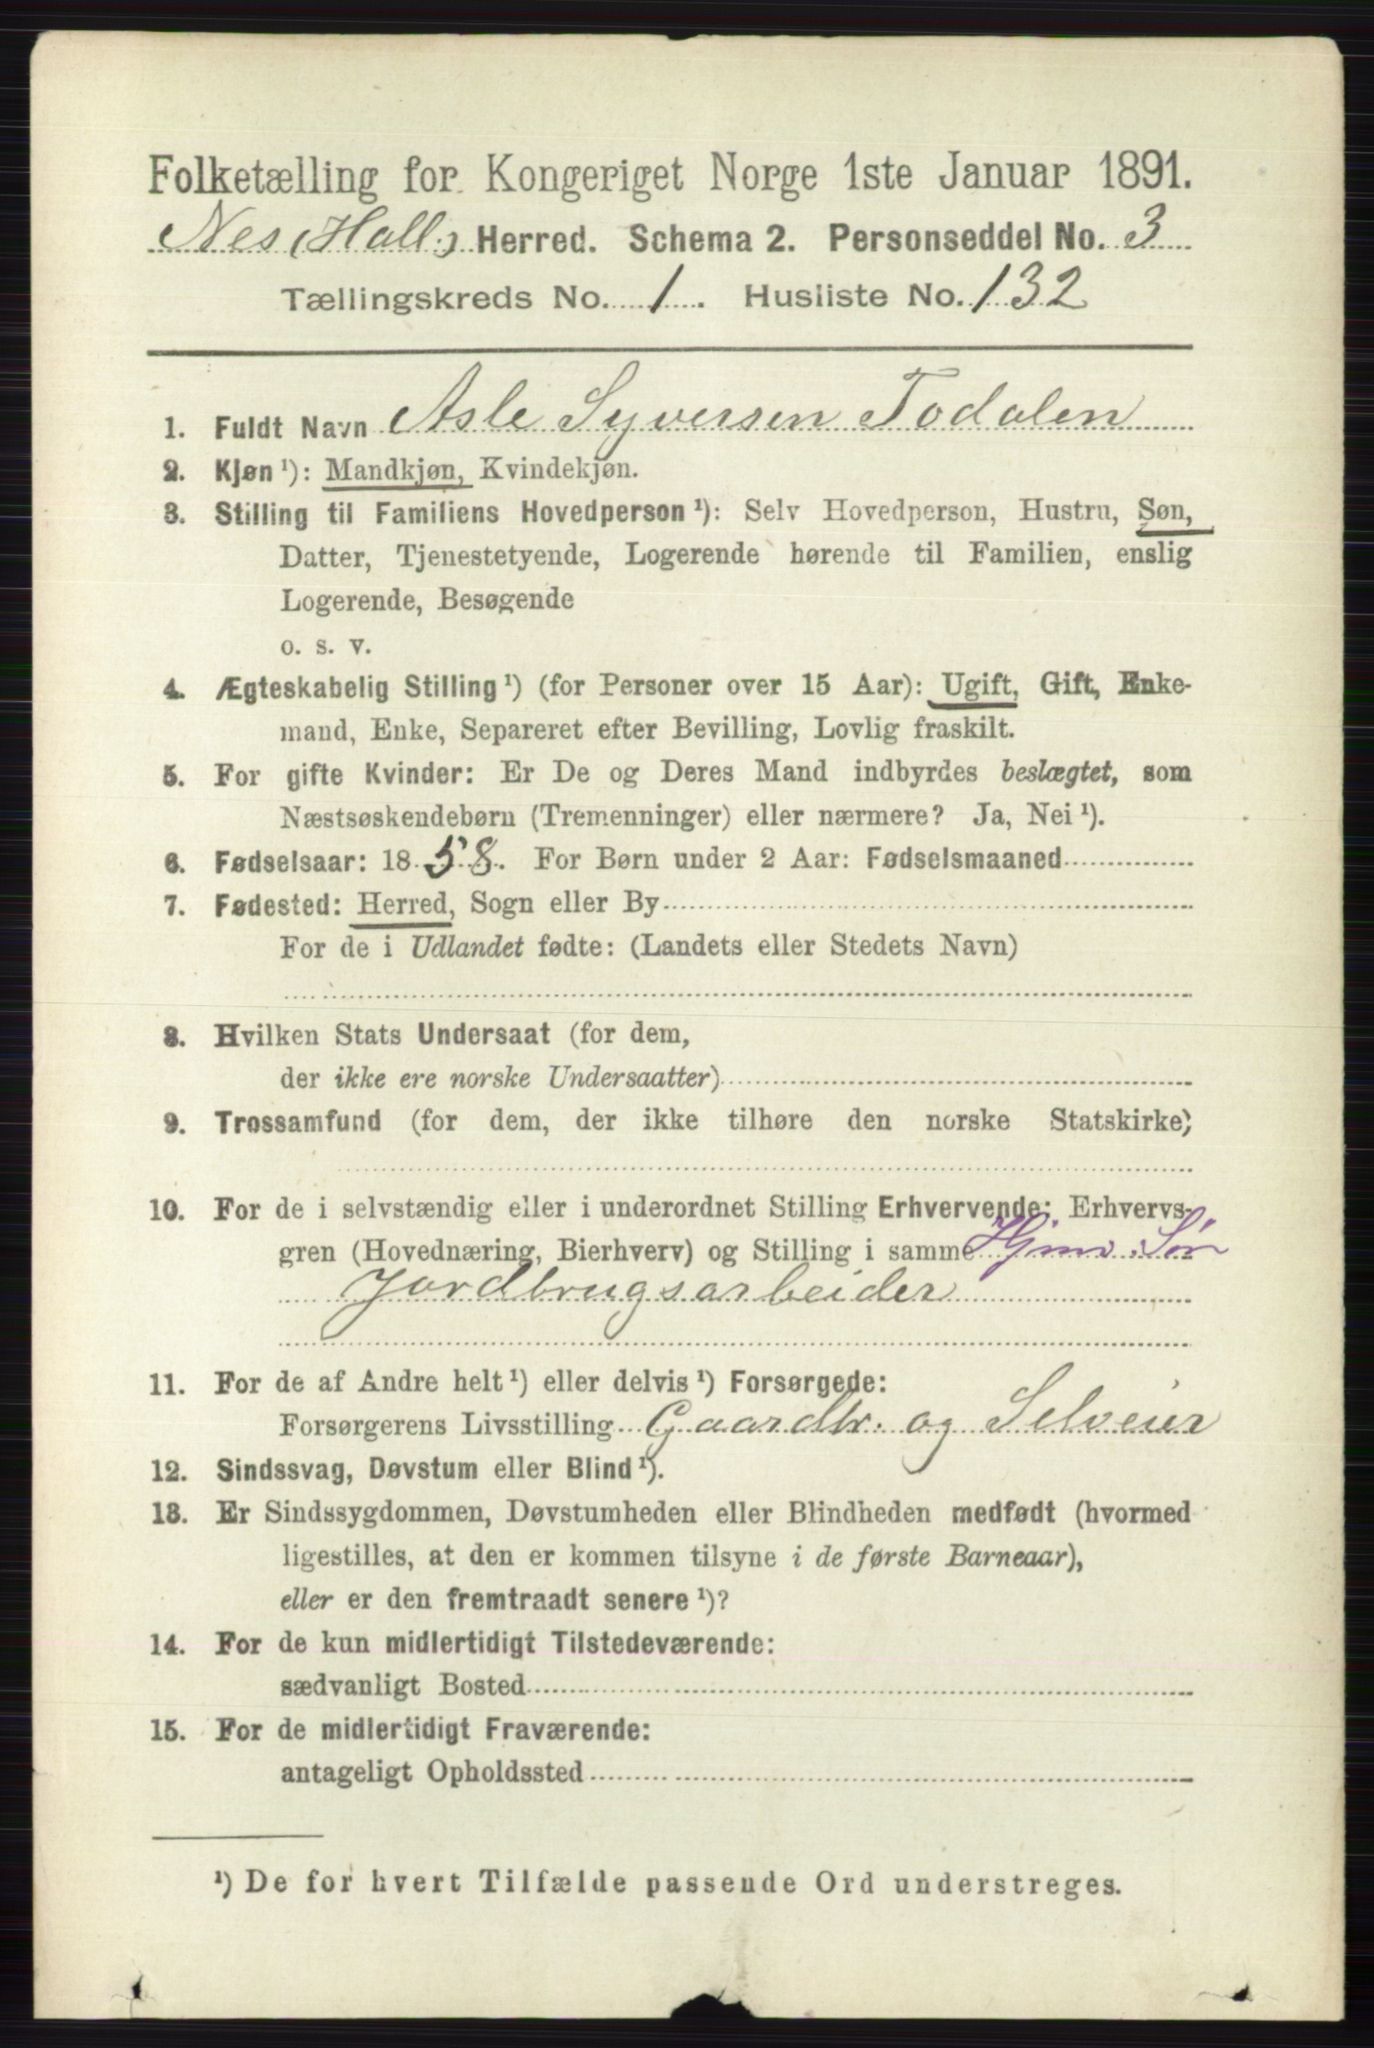 Folketælling for Kongeriget Norge 1ste Januar 1891.
Nes (Hall.) Herred. Schema 2. Personseddel No. 3
Tællingskreds No. 1. Husliste No. 132
1. Fuldt Navn Asle Syversen Todalen
2. Kjøn ¹): Mandkjøn, Kvindekjøn.
3. Stilling til Familiens Hovedperson ¹): Selv Hovedperson, Hustru, Søn,
Datter, Tjenestetyende, Logerende hørende til Familien, enslig
Logerende, Besøgende
o. s. v.
4. Ægteskabelig Stilling ¹) (for Personer over 15 Aar): Ugift, Gift, Enke-
mand, Enke, Separeret efter Bevilling, Lovlig fraskilt.
5. For gifte Kvinder: Er De og Deres Mand indbyrdes beslægtet, som
Næstsøskendebørn (Tremenninger) eller nærmere? Ja, Nei ¹).
6. Fødselsaar: 1858. For Børn under 2 Aar: Fødselsmaaned
7. Fødested: Herred, Sogn eller By
For de i Udlandet fødte: (Landets eller Stedets Navn)
8. Hvilken Stats Undersaat (for dem,
der ikke ere norske Undersaatter)
9. Trossamfund (for dem, der ikke tilhøre den norske Statskirke)
10. For de i selvstændig eller i underordnet Stilling Erhvervende: Erhvervs-
gren (Hovednæring, Bierhverv) og Stilling i samme Hjmv. Søn
Jordbrugsarbeider
11. For de af Andre helt ¹) eller delvis ¹) Forsørgede:
Forsørgerens Livsstilling Gaardbr. og Selveier
12. Sindssvag, Døvstum eller Blind ¹).
13. Er Sindssygdommen, Døvstumheden eller Blindheden medfødt (hvormed
ligestilles, at den er kommen tilsyne i de første Barneaar),
eller er den fremtraadt senere ¹)?
14. For de kun midlertidigt Tilstedeværende:
sædvanligt Bosted
15. For de midlertidigt Fraværende:
antageligt Opholdssted
¹) De for hvert Tilfælde passende Ord understreges.